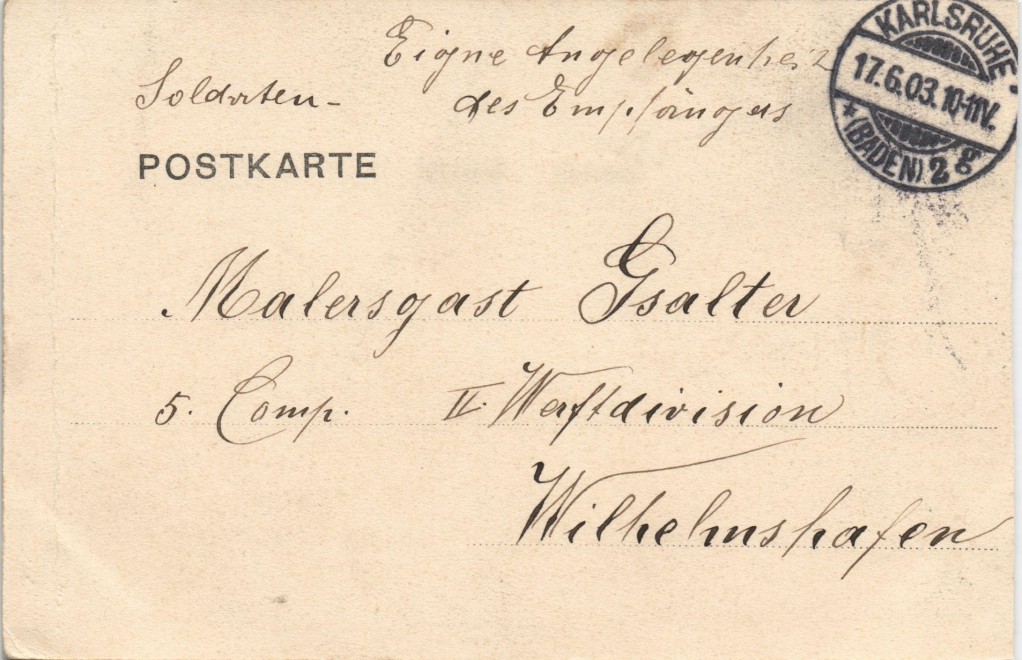 Eigne Angelegenheit
des Empfängers
Soldaten-
POSTKARTE
KARLSRUHE,
17.6.03.10-11V.
* (BADEN). 2 g
Malersgast Gsalter
5. Comp. II. Werftdivision
Wilhelmshafen